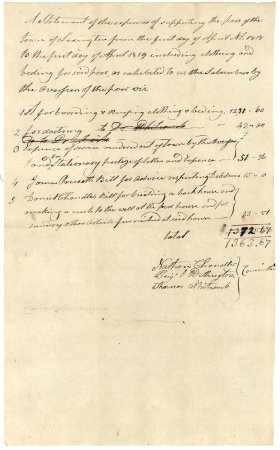 A Statement of the expences of supporting the poor of the
town of Lexington from the first day of April AD 1818
to the first day of April 1819 including clothing and
beding for said poor, as exhibited to us the Subscribers by
the Overseers of the poor viz
1st for boarding & nursing clothing & beding, 1231-60
2 For doctoring to Dr Whitcomb 42-00
3 Expence of services rendered out of town by the Overseers
and Stationary postage of letters and Expence 51-36
4 Esquire Prescott Bill for advice respecting Debtors 15-0
5 Daniel Chandler Bill for building a back house and
making a curb to the well at the poor house and for
sundry other articles for said house 23-51
total 1372 67
1363.67
Nathan Chandler
Benj. O Wellington
Thomas Whitcomb
Committee